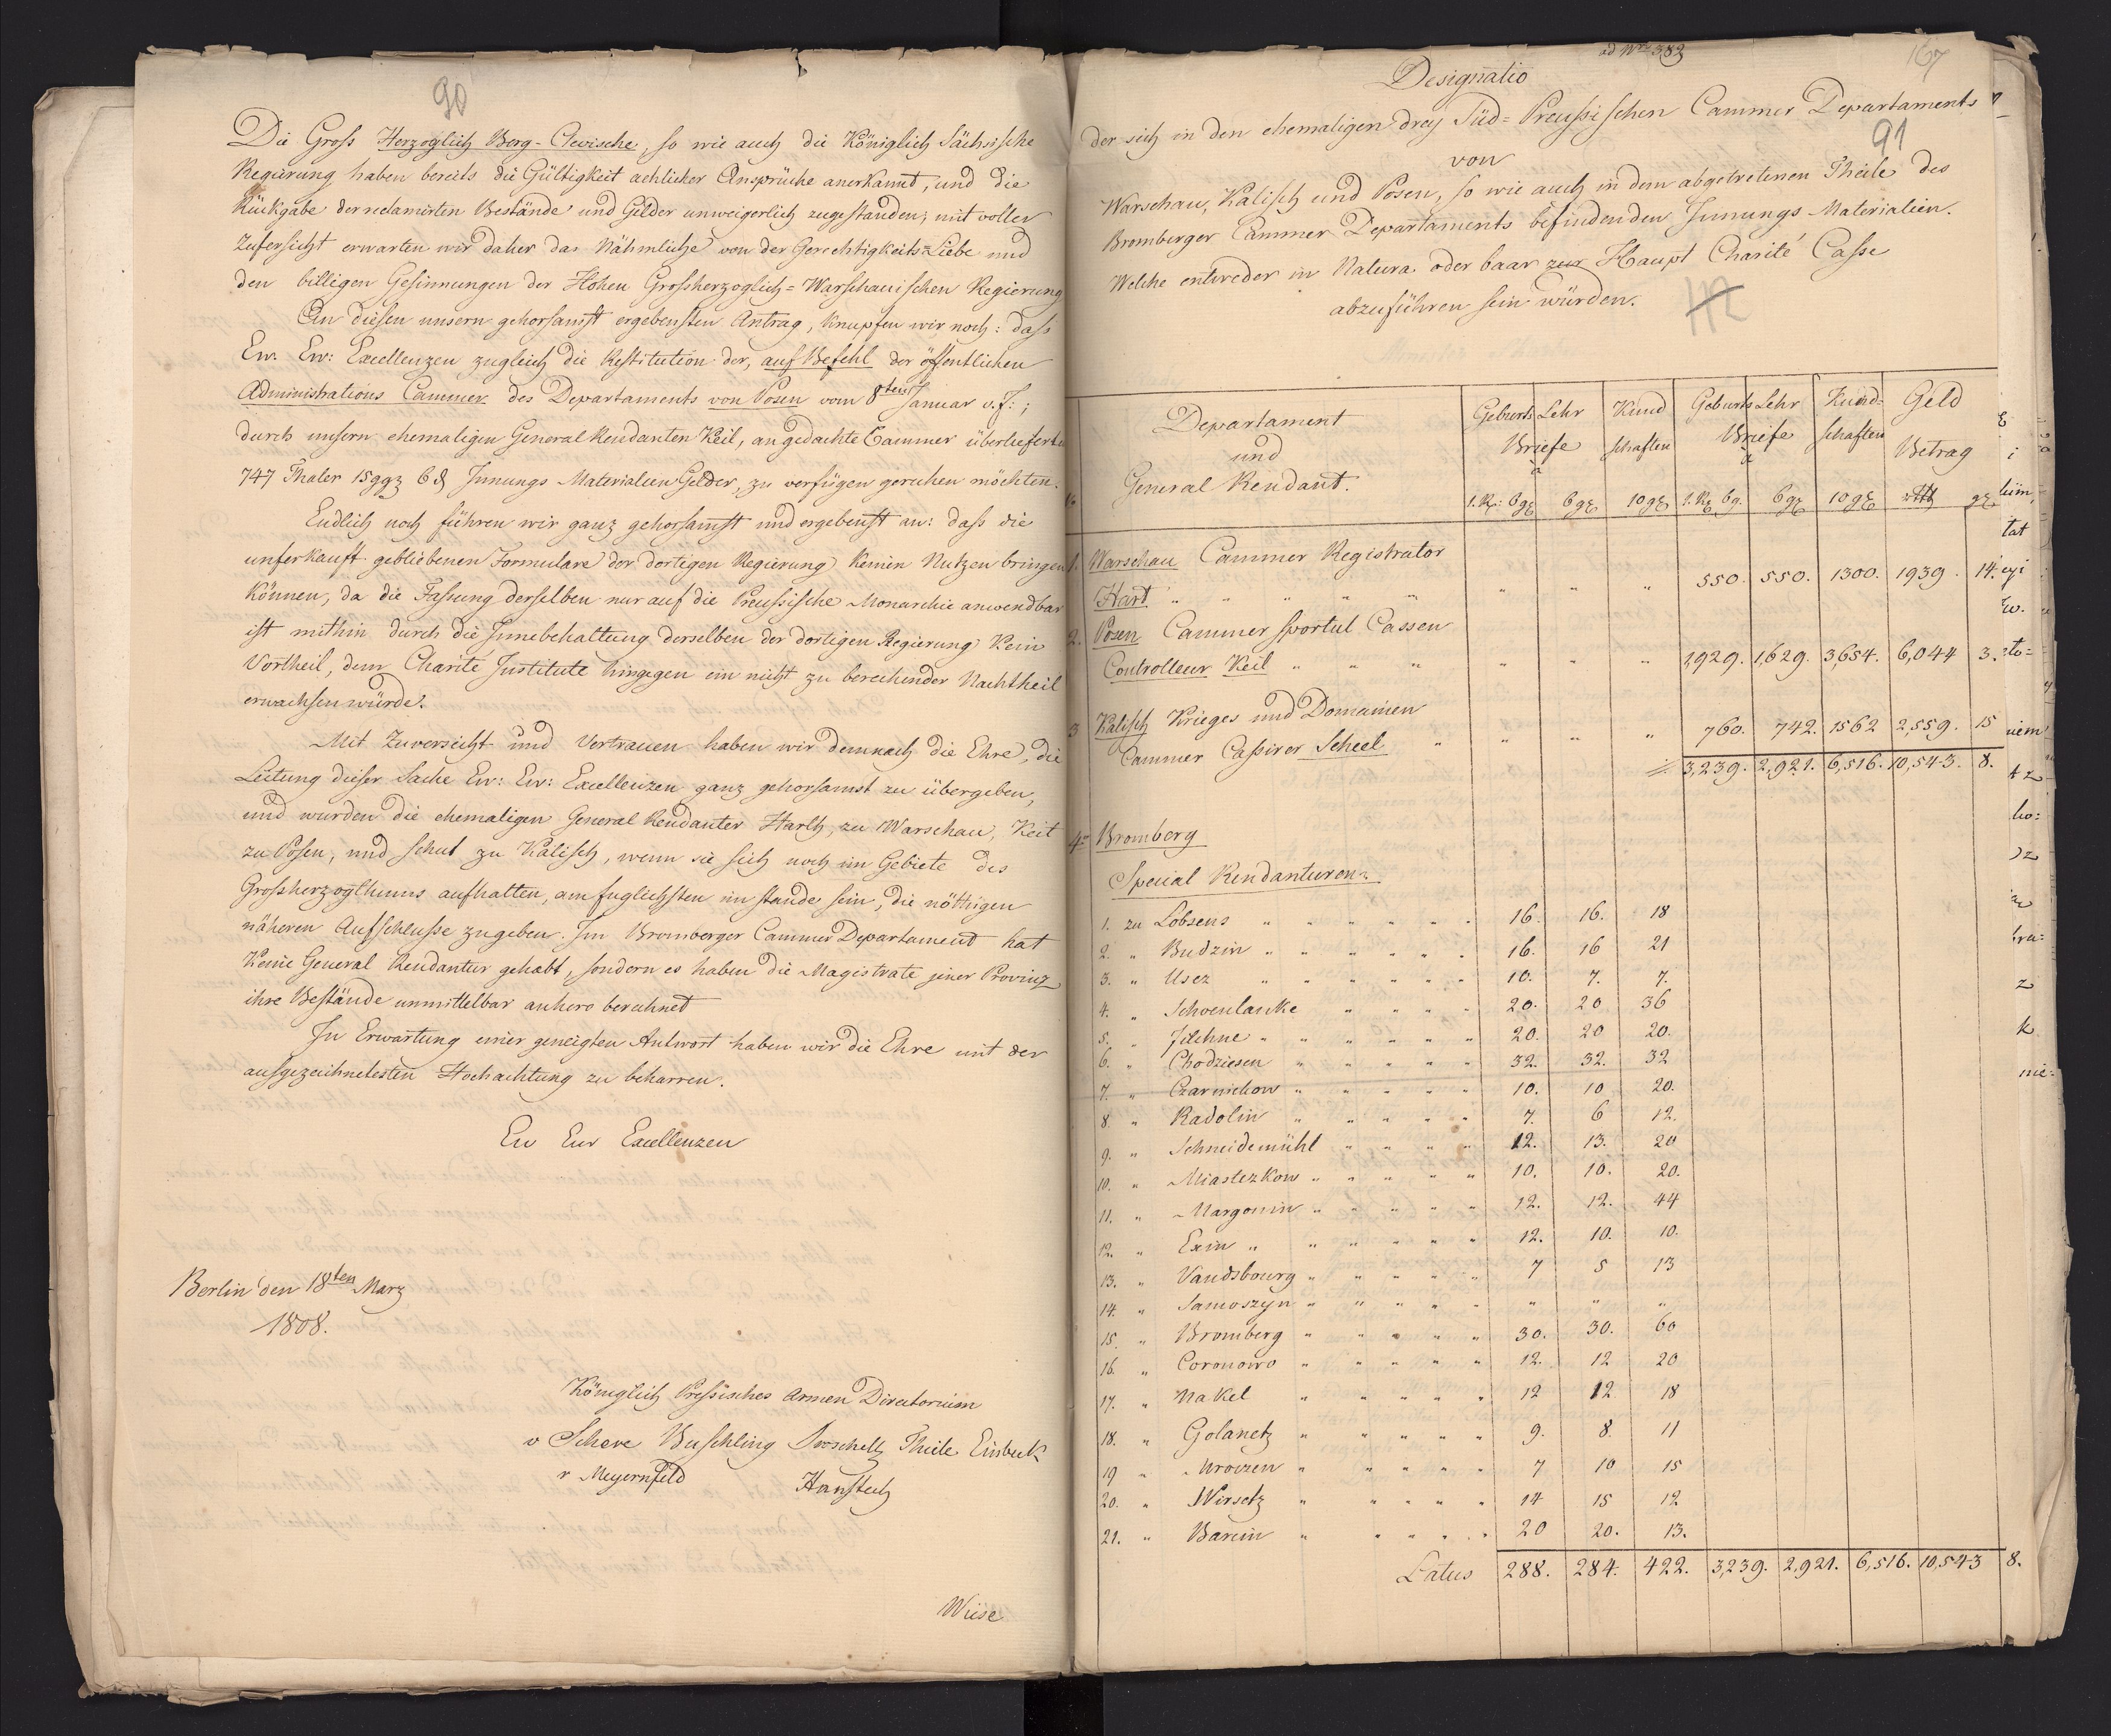 90
Die Gross Herzoglich Berg-Clevische, so wie auch die Königlich Sächsische
Regierung haben bereits die Gültigkeit aehlicher Ansprüche anerkannt, und die
Rückgabe der reclamirten Bestände und Gelder unweigerlich zugestanden; mit voller
Zufersicht erwarten wir daher das Nähmliche von der Gerechtigkeits=Liebe und
den billigen Gesinnungen der Hohen Grossherzoglich=Warschauischen Regierung
An diesen unsern gehorsamst ergebensten Antrag, Knupfen wir noch: dass
Ew. Ew: Excellenzen zugleich die Restitution der, auf Befehl der öffentlichen
Administrations Cammer des Departaments von Posen vom 8ten Januar v. J:;
durch unsern ehemaligen General Rendanten Keil, an gedachte Cammer überlieferte
747 Thaler 15 ggz 6 d Innungs Materialien Gelder, zu verfügen geruhen möchten.
Endlich noch führen wir ganz gehorsamst und ergebenst an: dass die
unferkauft gebliebenen Formulare der dortigen Regierung Keinen Nutzen bringen
Können, da die Fassung derselben nur auf die Preussische Monarchie anwendbar
ist mithin durch die Innebehaltung derselben der dortigen Regierung Kein
Vortheil, dem Charité Institute hingegen ein nicht zu berechender Nachtheil
erwachsen würde.
Mit Zuversicht und Vertrauen haben wir demnach die Ehre, die
Leitung dieser Sache Ew: Ew: Excellenzen ganz gehorsamst zu übergeben,
und wurden die ehemaligen General Rendanter Harth, zu Warschau, Keit
zu Posen, und Schul zu Kalisch, wenn sie sich noch im Gebiete des
Grossherzogthums aufhalten, am fuglichsten im stande sein, die nöthigen
näheren Aufschlusse zugeben. Im Bromberger Cammer Departament hat
Keine General Rendantur gehabt, sondern es haben die Magistrate jener Provinz
ihre Bestände unmittelbar anhero berechnet
In Erwartung einer geneigten Antwort haben wir die Ehre mit der
ausgezeichnetesten Hochachtung zu beharren.
Ew Eur Excellenzen
Berlin den 18ten Marz
1808.
Königlich Pressisches Armen Directorium
v Scheve Buschling Thiele Einbeck
v Meyernfeld
Wiese
ad Nro 382
167
Designatio
der sich in den ehemaligen drey Süd=Preussischen Cammer Departaments
91
von
Warschau, Kalisch und Posen, so wie auch in dem abgetretenen Theile des
Bromberger Cammer Departaments befindenden Innungs Materialien.
Welche entweder in Natura oder baar zur Haupt Charité Casse
abzuführen sein würden.
112
Departament und General Rendant. Geburts Lehr Briefe Kund schaften Geburts Lehr Briefe Kund= schaften Geld Betrag
1. Rz: 6 gz 6 gz 10 gz 1. Rz 6 g. 6 gz 10 gz rtlh gz
1. Warschau Cammer Registrator
Hart " " " " " " " " 550. 550. 1300. 1939. 14.
2. Posen Cammer Sportul Cassen
Controlleur Keil " " " " " " 1,929. 1,629. 3,654. 6,044 3.
3 Kalisch Krieges und Domainen
Cammer Cassirer Scheel " " " " 760. 742. 1562 2,559. 15
3,239. 2,921. 6,516. 10,543. 8.
4. Bromberg
Special Rendanturen
1. zu Lobsens " " " " " " 16. 16. 18
2. " Budzin " " " " " " 16. 16 21
3. " Usez " " " " " " 10. 7. 7.
4. " Schoenlancke " " " " 20. 20 36
5. " Filehne " " " " " " 20. 20 20.
6. " Chodziesen " " " " " 32. 32. 32
7. " Czarnickow " " " " " 10. 10 20.
8. " Radolin " " " " " 7. 6 12.
9. " Schneidemühl " " " " 12. 13. 20
10. " Miastezkow " " " " " 10. 10. 20.
11. " Margonin " " " " " 12. 12. 44
12. " Exin " " " " " " 12. 10. 10.
13. " Vandsbourg " " " " " 7 5 13
14. " Samoszyn " " " " " " " "
15. " Bromberg " " " " " 30. 30. 60
16. " Coronowo " " " " " 12. 12 20
17. " Nakel " " " " " 12 12 18
18. " Golanetz " " " " " 9. 8. 11
19 " Mroczen " " " " " 7 10 15
20. " Wirsetz " " " " " 14 15 12
21. " Barcin " " " " " 20 20. 13.
Latus 288. 284. 422. 3,239. 2,921. 6,516. 10,543 8.